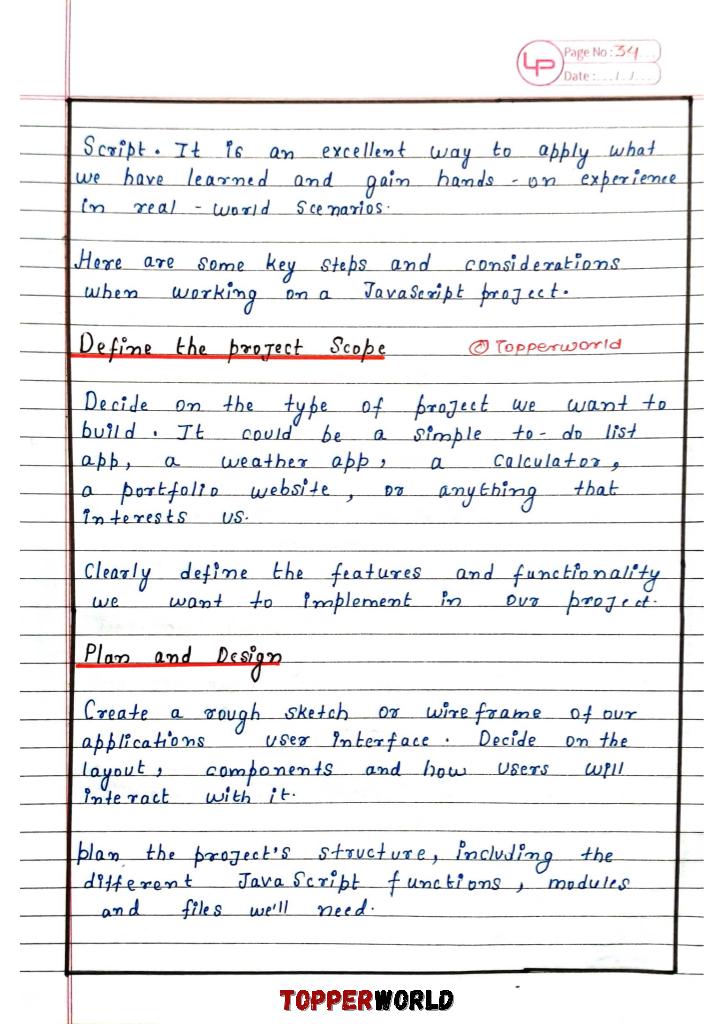 LP
Page No: 34...
Date: .../.../...
Script. It is an excellent way to apply what
we have learned and gain hands-on experience
in real-world scenarios.
Here are some key steps and considerations
when working on a JavaScript project.
Define the project Scope
© Topperworld
Decide on the type of project we want to
build. It could be a simple to-do list
app, a weather app, a calculator,
a portfolio website, or anything that
interests us.
Clearly define the features and functionality
we want to implement in our project.
Plan and Design
Create a rough sketch or wireframe of our
applications user interface. Decide on the
layout, components and how users will
interact with it.
plan the project's structure, including the
different JavaScript functions, modules
and files we'll need.
TOPPERWORLD